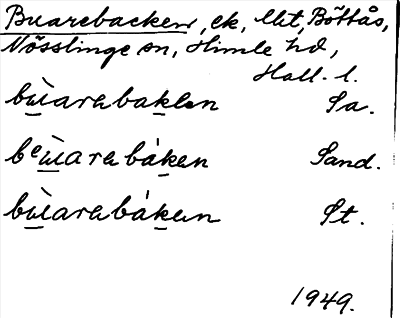 Buarebacken, ek, Böttås,
Nösslinge sn, Himle hd,
Hall. l.
bù̲arabak̲en Sa.
beù̲arabák̲en Sand.
bù̲arabák̲en St.
1949.